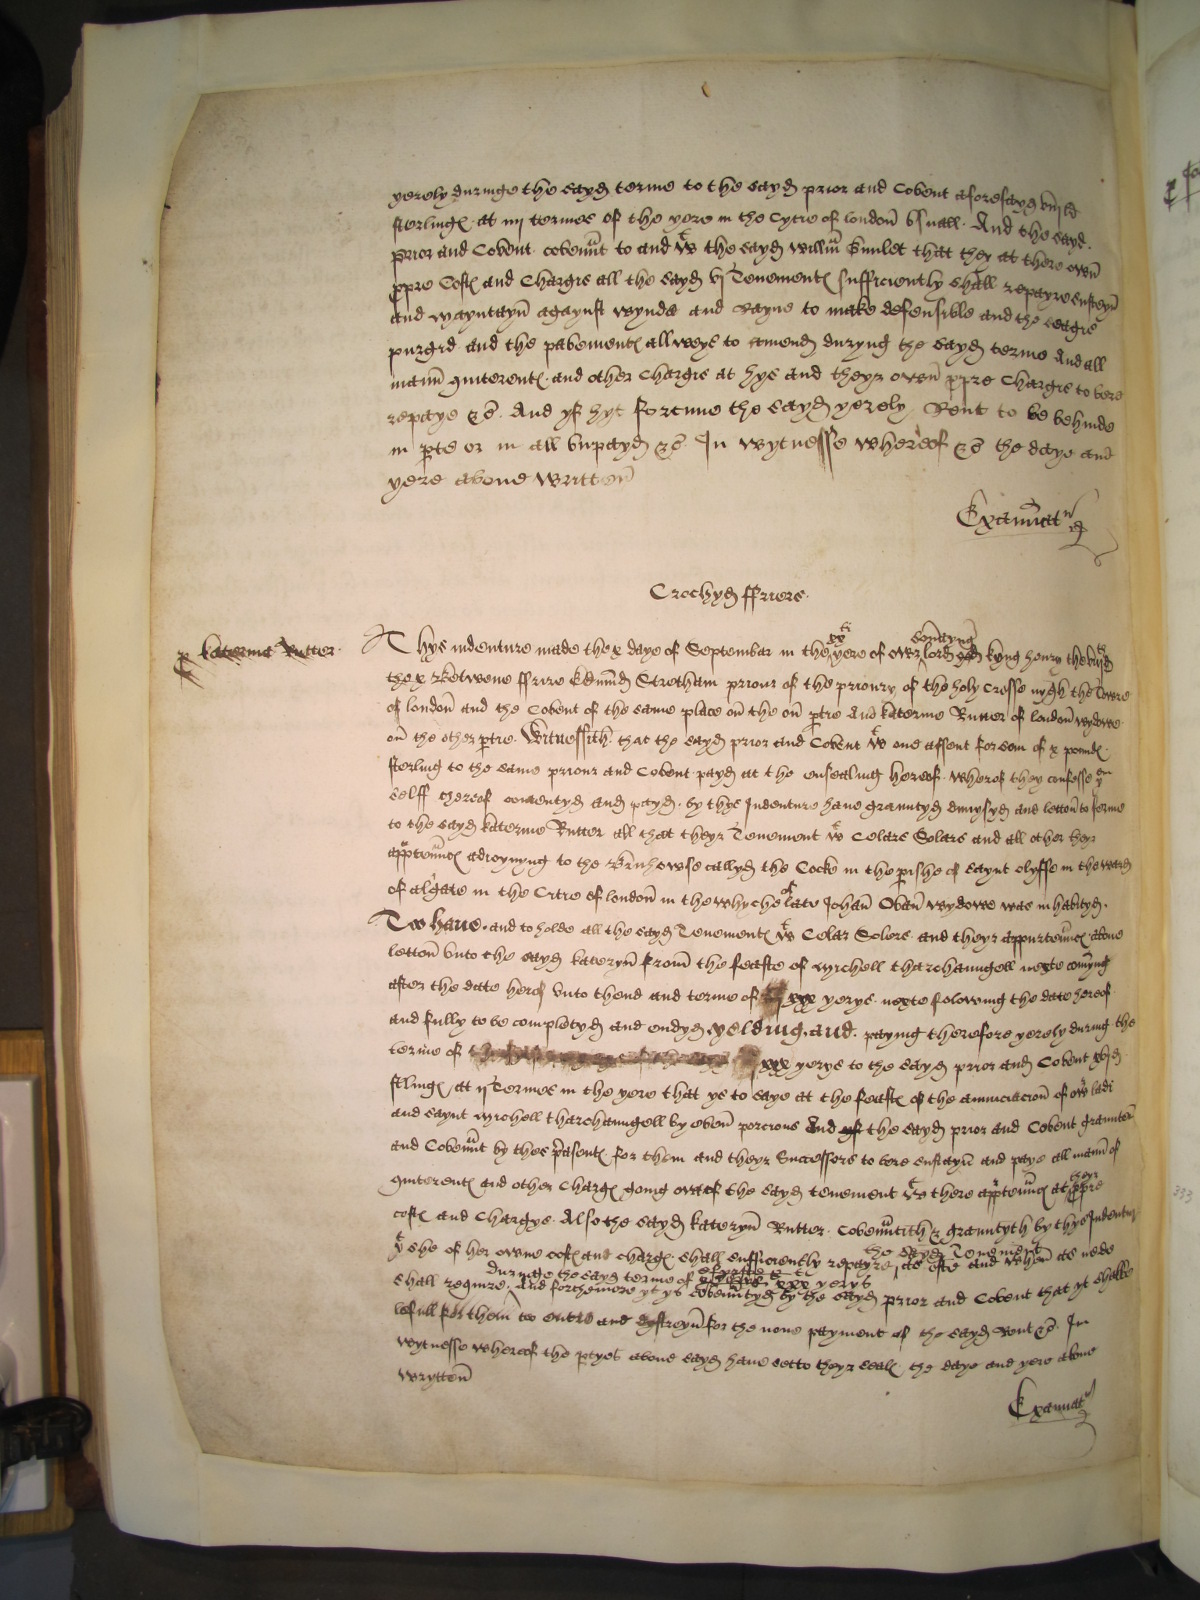 yerely duringe the sayd terme to the sayd prior and Covent aforesayd
sterling at iiij termes of the yere in the Cytie of london vsuall. And the sayd
prior and Covent covent to and wt the sayd Willm that they at there owen
ppre Costs and Chargis all the sayd vj Tenements sufficiently shall repayre susteyn
and mayntayn agaynst wynde and rayne to make defensible and the
purgid and the pavements all weys to amend duryng the sayd terme And all
mann quiterents and other Chargis at hys and theyr owen ppre Chargis to bere
repaye &c. And yf hyt fortune the sayd yerely Rent to be behinde
in pte or in all vnpayd &c. In wytnesse whereof &c the daye and
yere above written
Examinat
Crochyd ffriers.
p katerina Rutter
Thys indenture made the x daye of Septembar in the xx ti yere of ower soverayng lord kyng henry the viijth
the x Betwene ffrire Edmund Stretham priour of the priory of the holy Crosse nygh the towre
of london and the Covent of the same place on the on ptie And katerine Rutter of london wydowe
on the other ptie. Witnessith that the sayd prior and Covent wt one assent for som of x pounds
sterling to the same priour and Covent payd at the ensealing hereof wherof they confesse
selff thereof contentyd and payd by thys Indenture have grauntyd dimysyd and letton to ferme
to the sayd katerine Rutter all that theyr Tenement wt Celars Solars and all other theyr
apptenncs adioynyng to the Bruhowse callyd the Cocke in the pishe of saynt olyffe in the ward
of algate in the Citie of london in the whyche late Johan wydowe was inhabityd.
Too have and to holde all the sayd Tenements wt Celar Solers and theyr appurtenncs above
letton vnto the sayd kateryn from the feaste of mychell tharchaungell nexte comyng
after the date herof vnto thend and terme of xxx yerys nexte folowing the date hereof
and fully to be completyd and endyd yelding and paying therefore yerely during the
terme of xxx yerys to the sayd prior and Covent
stlings at ij Termes in the yere that ys to saye at the feasts of the annunciacion of owr ladi
and saynt mychell tharchaungell by even porcions And yf the sayd prior and Covent graunten
and Covennt by thes psents for them and theyr Successors to bere susteyn and paye all mann of
quiterents and other Chargs going owt of the sayd tenement wt there apptenncs at theyr ppre
costs and Chargys. Also the sayd kateryn Rutter Covenntith & grauntyth by thys Indentur
yt she of her owene costs and chargs shall suffisiently repayre the sayd Tenement as ofte and when as nede
shall require duringe the sayd terme of xxx yerys And forthemore yt ys covenntyd by the sayd prior and Covent that yt shalbe
lefull for them to entre and dystreyn for the none payment of the sayd Rent &c. In
wytnesse whereof the ptyes above sayd have setto theyr seals the daye and yere above
wrytten
Examinat
333